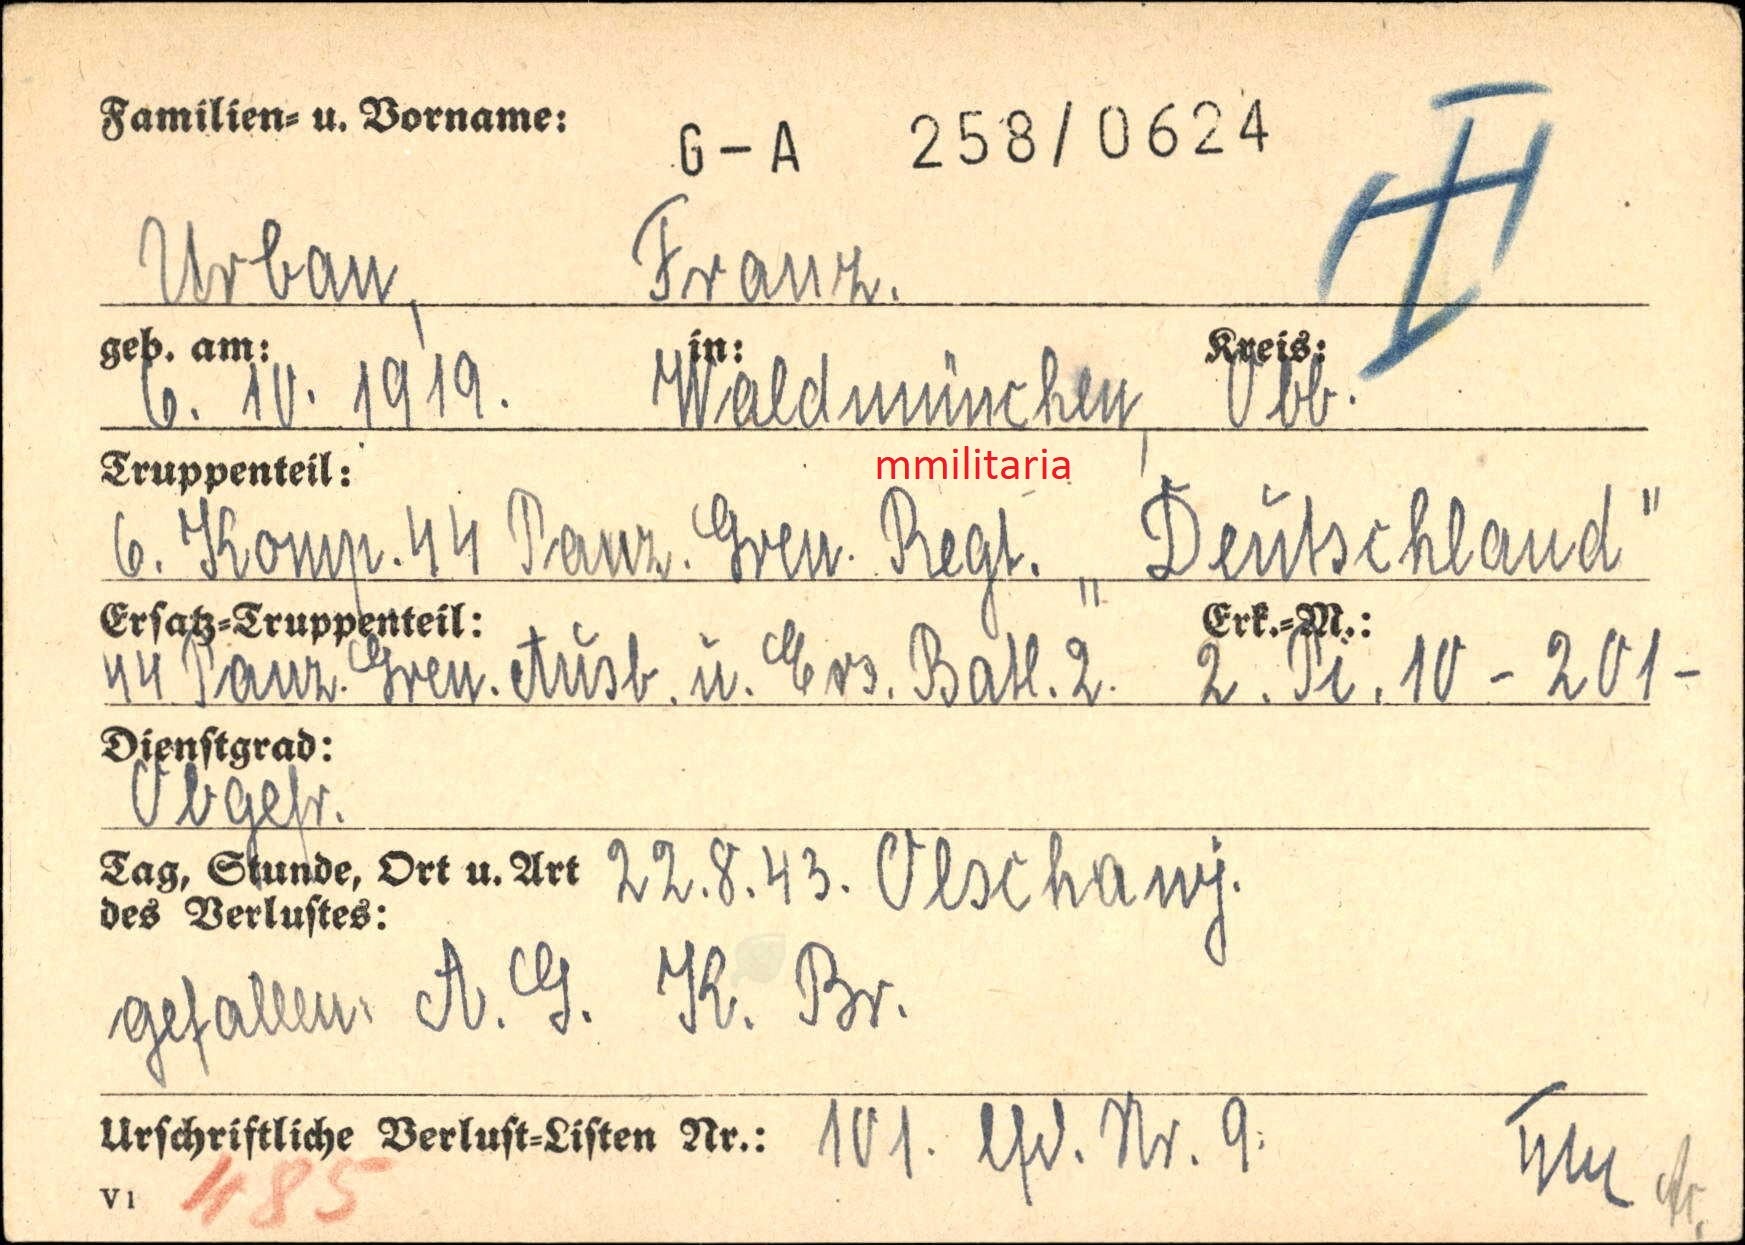 Familien- u. Vorname:
G-A 258/0624
Urban, Franz.
geb. am: in: Kreis:
6. 10. 1919. Waldmünchen, Obb.
mmilitaria
Truppenteil:
6. Komp. 44 Panz. Gren. Regt. „Deutschland"
Ersatz-Truppenteil: Erk.-M.:
44 Panz. Gren. Ausb. u. Ers. Batl. 2. 2. Pi. 10 - 201 -
Dienstgrad:
Obgefr.
Tag, Stunde, Ort u. Art 22.8.43. Olschanj.
des Verlustes:
gefallen: A. G. K. Br.
Urschriftliche Verlust-Listen Nr.: 101. lfd. Nr. 9.
V 1 485